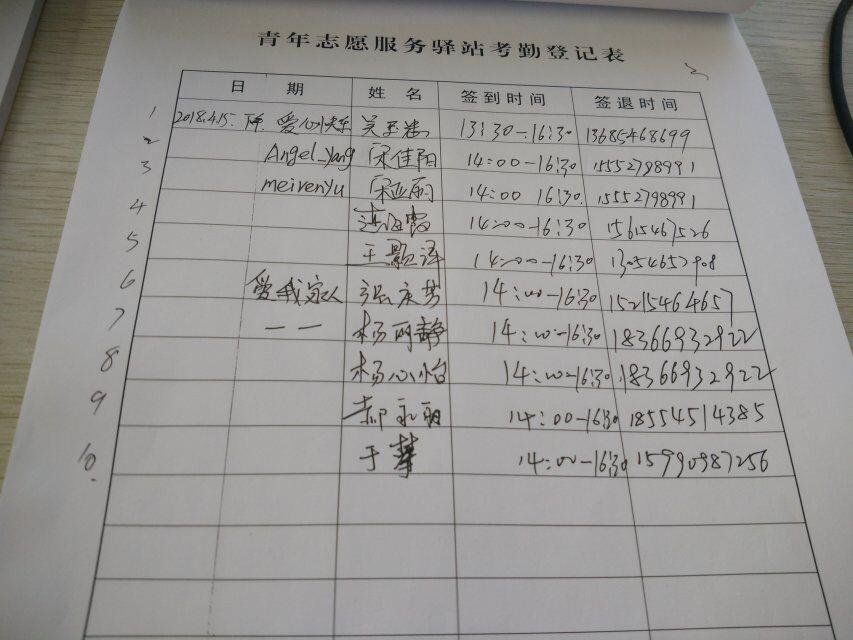 青年志愿服务驿站考勤登记表
日 期 姓 名 签到时间 签退时间
1 2018.4.15. 下午. 爱心快车 13:30-16:30 13685468699
2 Angel_Yang 宋佳阳 14:00-16:30 15552798991
3 meirenyu 宋亚丽 14:00 16:30. 15552798991
4 14:00-16:30 15615467526
5 王颢译 14:00-16:30 13054652908
6 爱我家人 张庆芳 14:00-16:30 15215464657
7 — — 杨丽静 14:00-16:30 18366932922
8 杨心怡 14:00-16:30 18366932922
9 郝永丽 14:00-16:30 18554514385
10. 于 14:00-16:30 15990987256